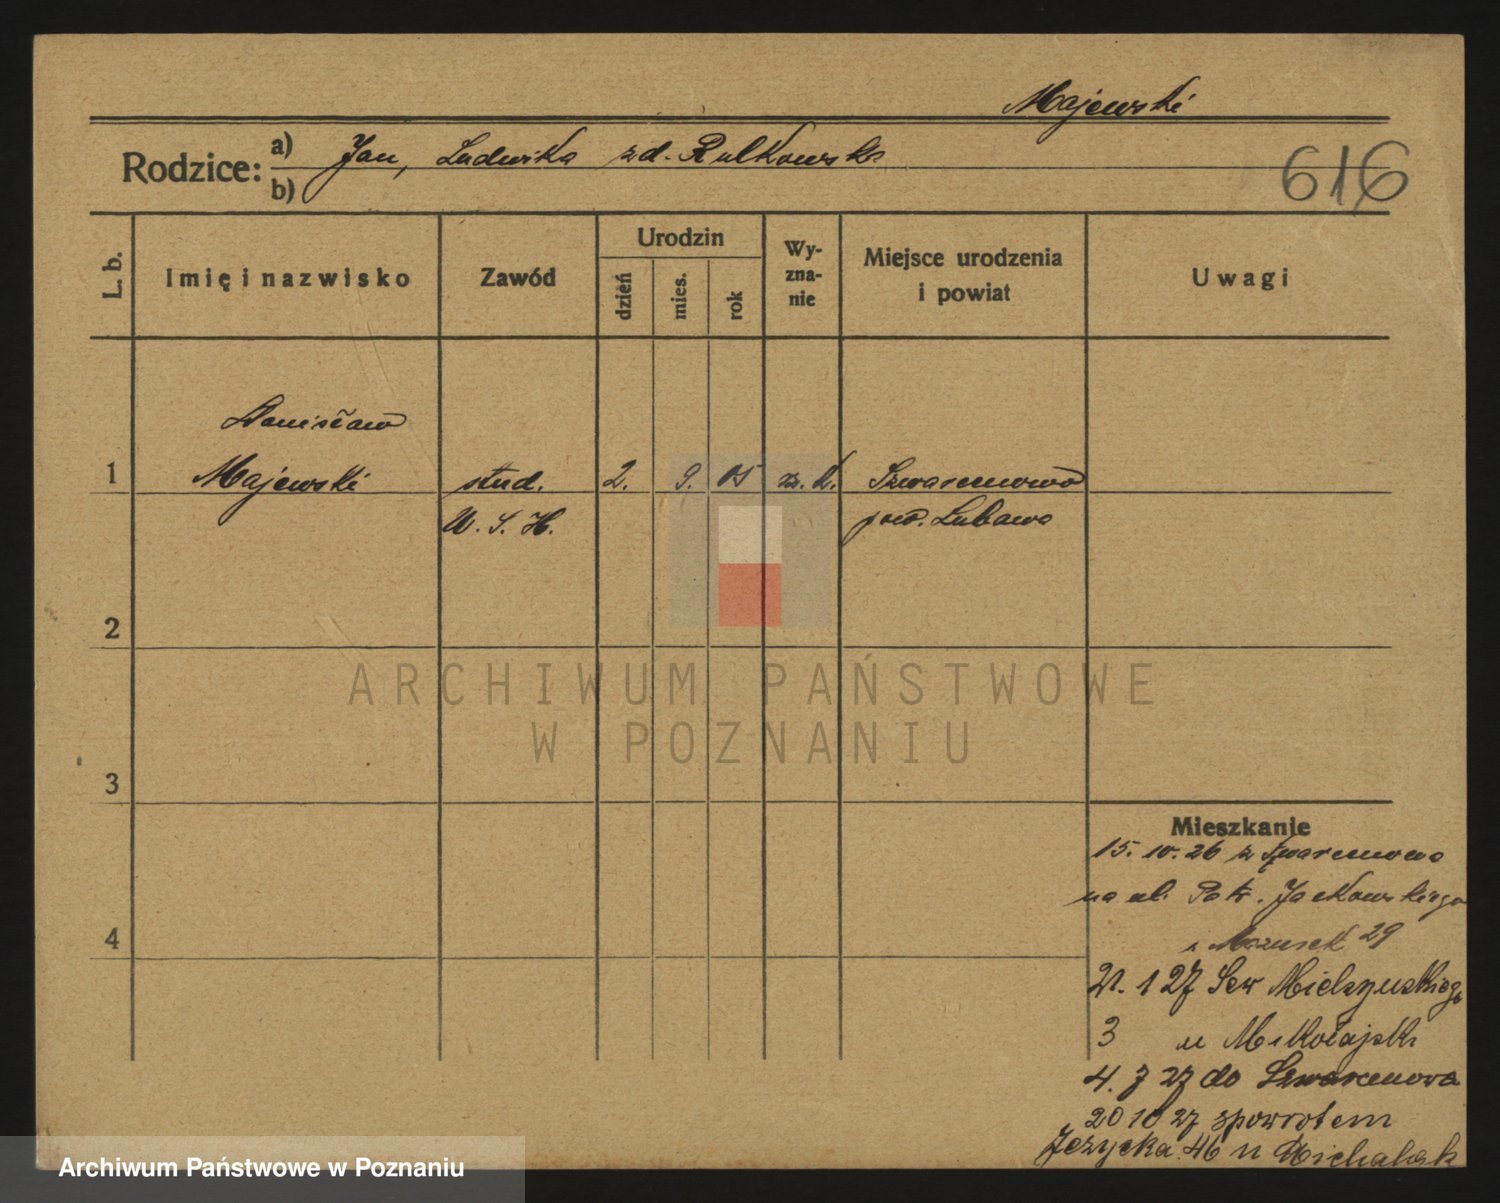 Majewski
Rodzice:
a) Jan, Ludwika zd. Rulkowska
b)
616
L. b.
Imię i nazwisko
Zawód
Urodzin
dzień
mies.
rok
Wy-
zna-
nie
Miejsce urodzenia
i powiat
Uwagi
Stanisław
1 Majewski stud. 2. 9. 05 rz. k. Szwarcenowo
W. S. H. pow. Lubawa
2
3
4
ARCHIWUM PAŃSTWOWE
W POZNANIU
Mieszkanie
15. 10. 26 z Szwarcenowo
na ul. Patr. Jackowskiego
Mazurek 29
21. 1 27 Sew Mielżyńskiego
3 u Mikołajski
4. 7 27 do Szwarcenowa
20 10 27 zpowrotem
Jeżycka. 46 u Michalak
Archiwum Państwowe w Poznaniu